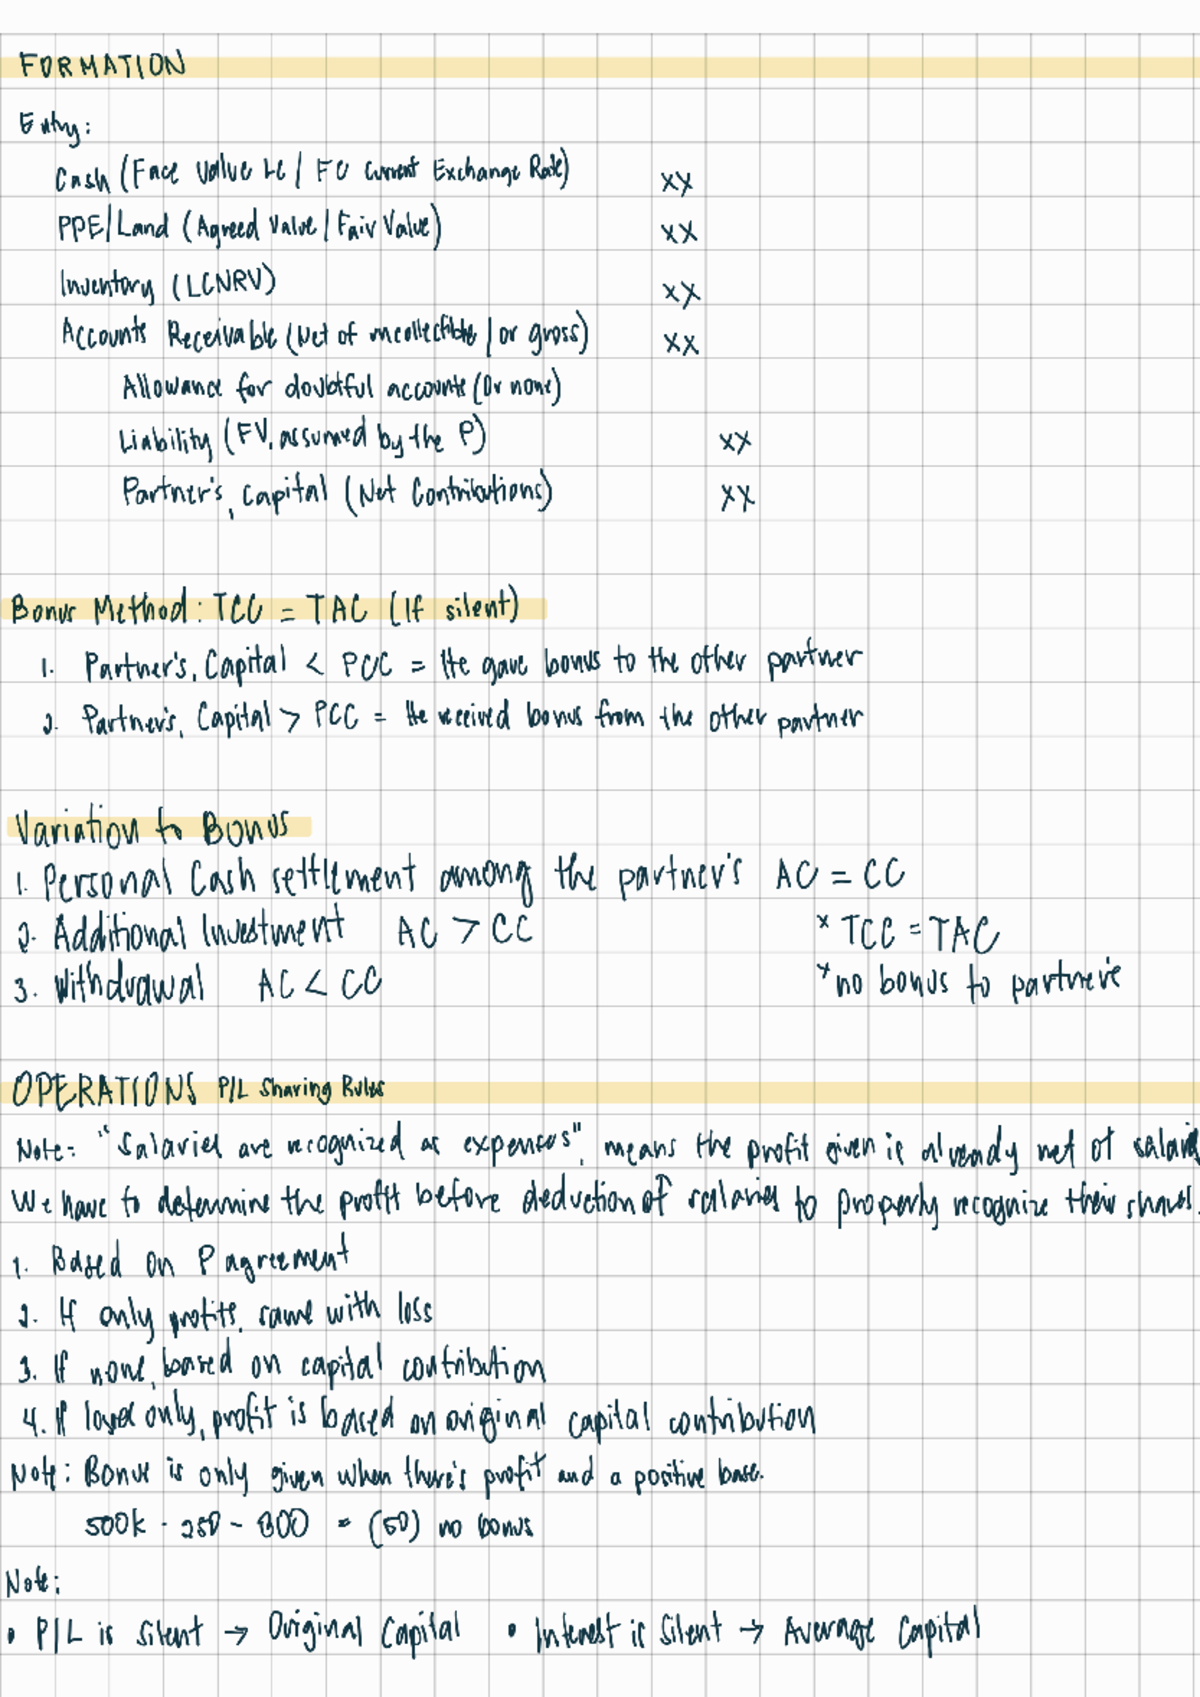 FORMATION
Entry:
Cash (Face Value LC / FC Current Exchange Rate) xx
PPE/Land (Agreed Value / Fair Value) xx
Inventory (LCNRV) xx
Accounts Receivable (Net of uncollectible / or gross) xx
Allowance for doubtful accounts (Or none)
Liability (FV, assumed by the P) xx
Partner's, Capital (Net Contributions) xx
Bonus Method: TCC = TAC (If silent)
1. Partner's, Capital < PCC = He gave bonus to the other partner
2. Partner's, Capital > PCC = He received bonus from the other partner
Variation to Bonus
1. Personal Cash settlement among the partner's AC = CC
2. Additional Investment AC > CC * TCC = TAC
3. Withdrawal AC < CC * no bonus to partner's
OPERATIONS P/L Sharing Rules
Note: "Salaries are recognized as expenses", means the profit given is already net of salaries
We have to determine the profit before deduction of salaries to properly recognize their shares.
1. Based on P agreement
2. If only profits, same with loss
3. If none, based on capital contribution
4. If losses only, profit is based on original capital contribution
Note: Bonus is only given when there's profit and a positive base.
500k - 250 - 300 = (50) no bonus
Note:
• P/L is silent → Original Capital • Interest is Silent → Average Capital